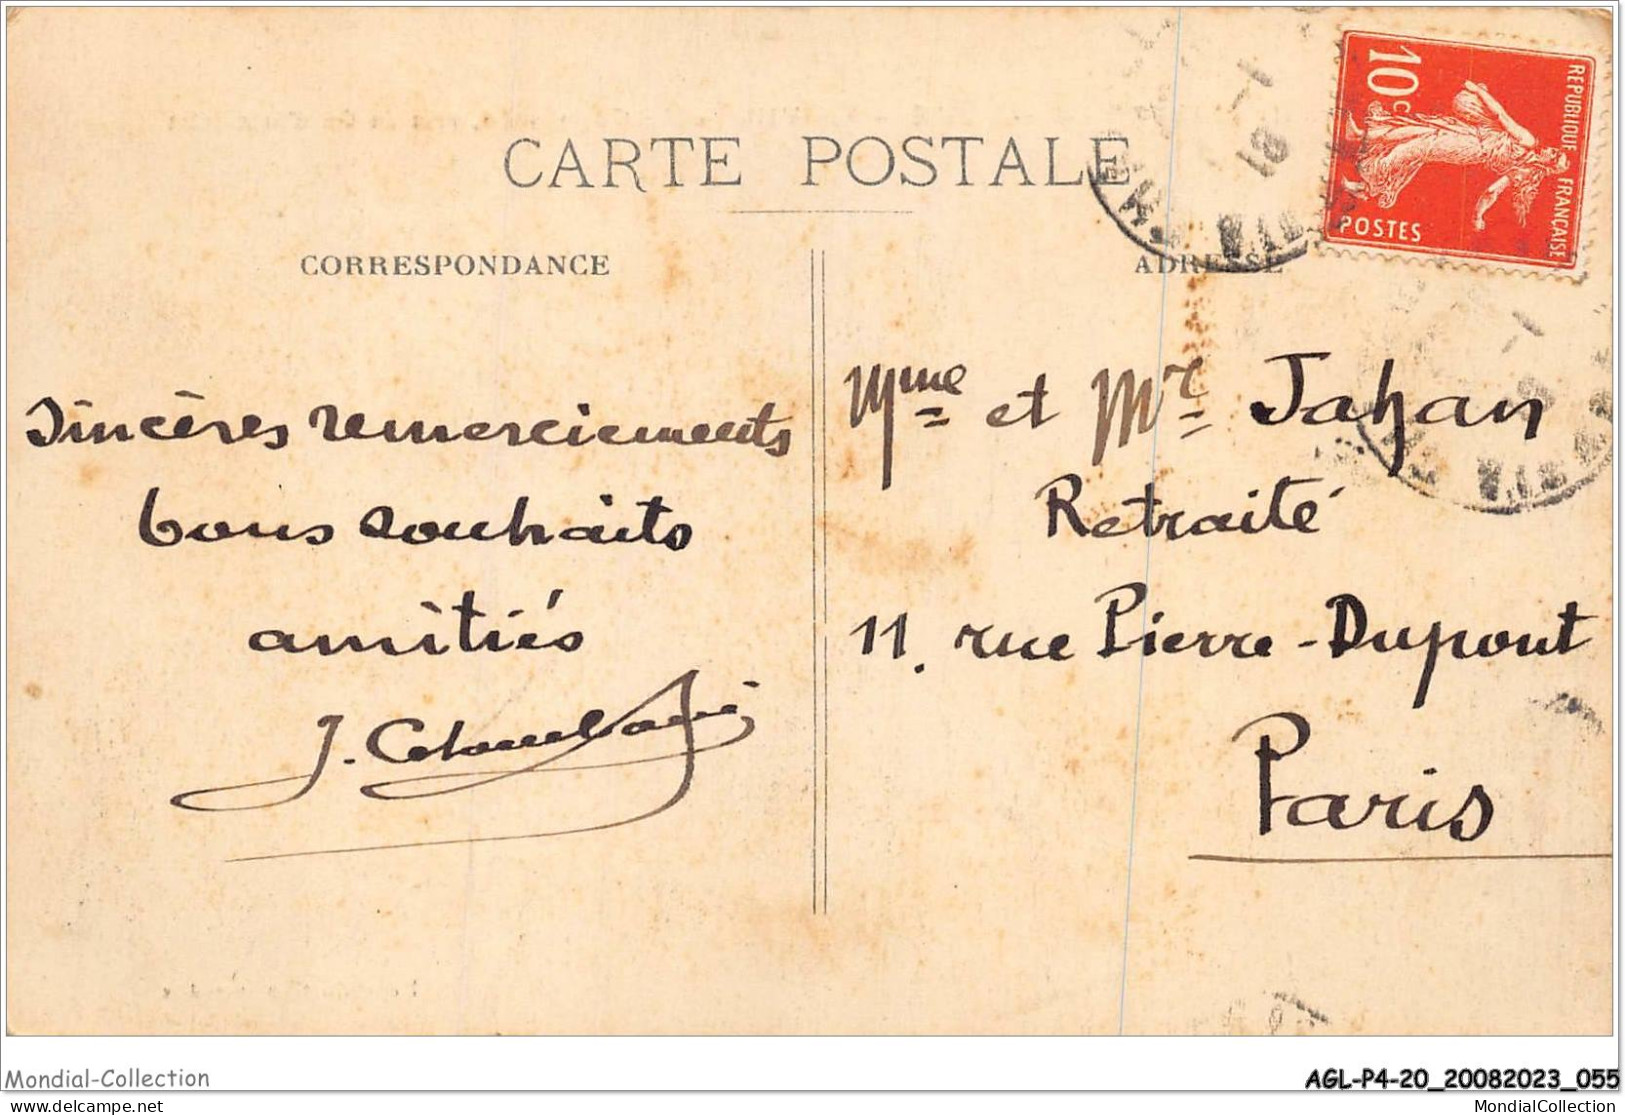 CARTE POSTALE
CORRESPONDANCE
Sincères remerciements
bons souhaits
amitiés
ADRESSE
10c
REPUBLIQUE FRANÇAISE
POSTES
Mme et Mr Jahan
Retraité
11. rue Pierre-Dupont
Paris
Mondial-Collection
AGL-P4-20_20082023_055
delcampe.net
MondialCollection